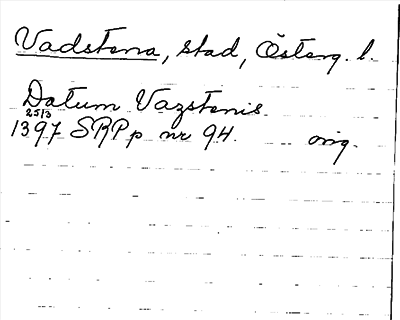 Vadstena, stad, Österg. l.
Datum Vazstenis.
25/3
1397 SRPp nr 94. orig.